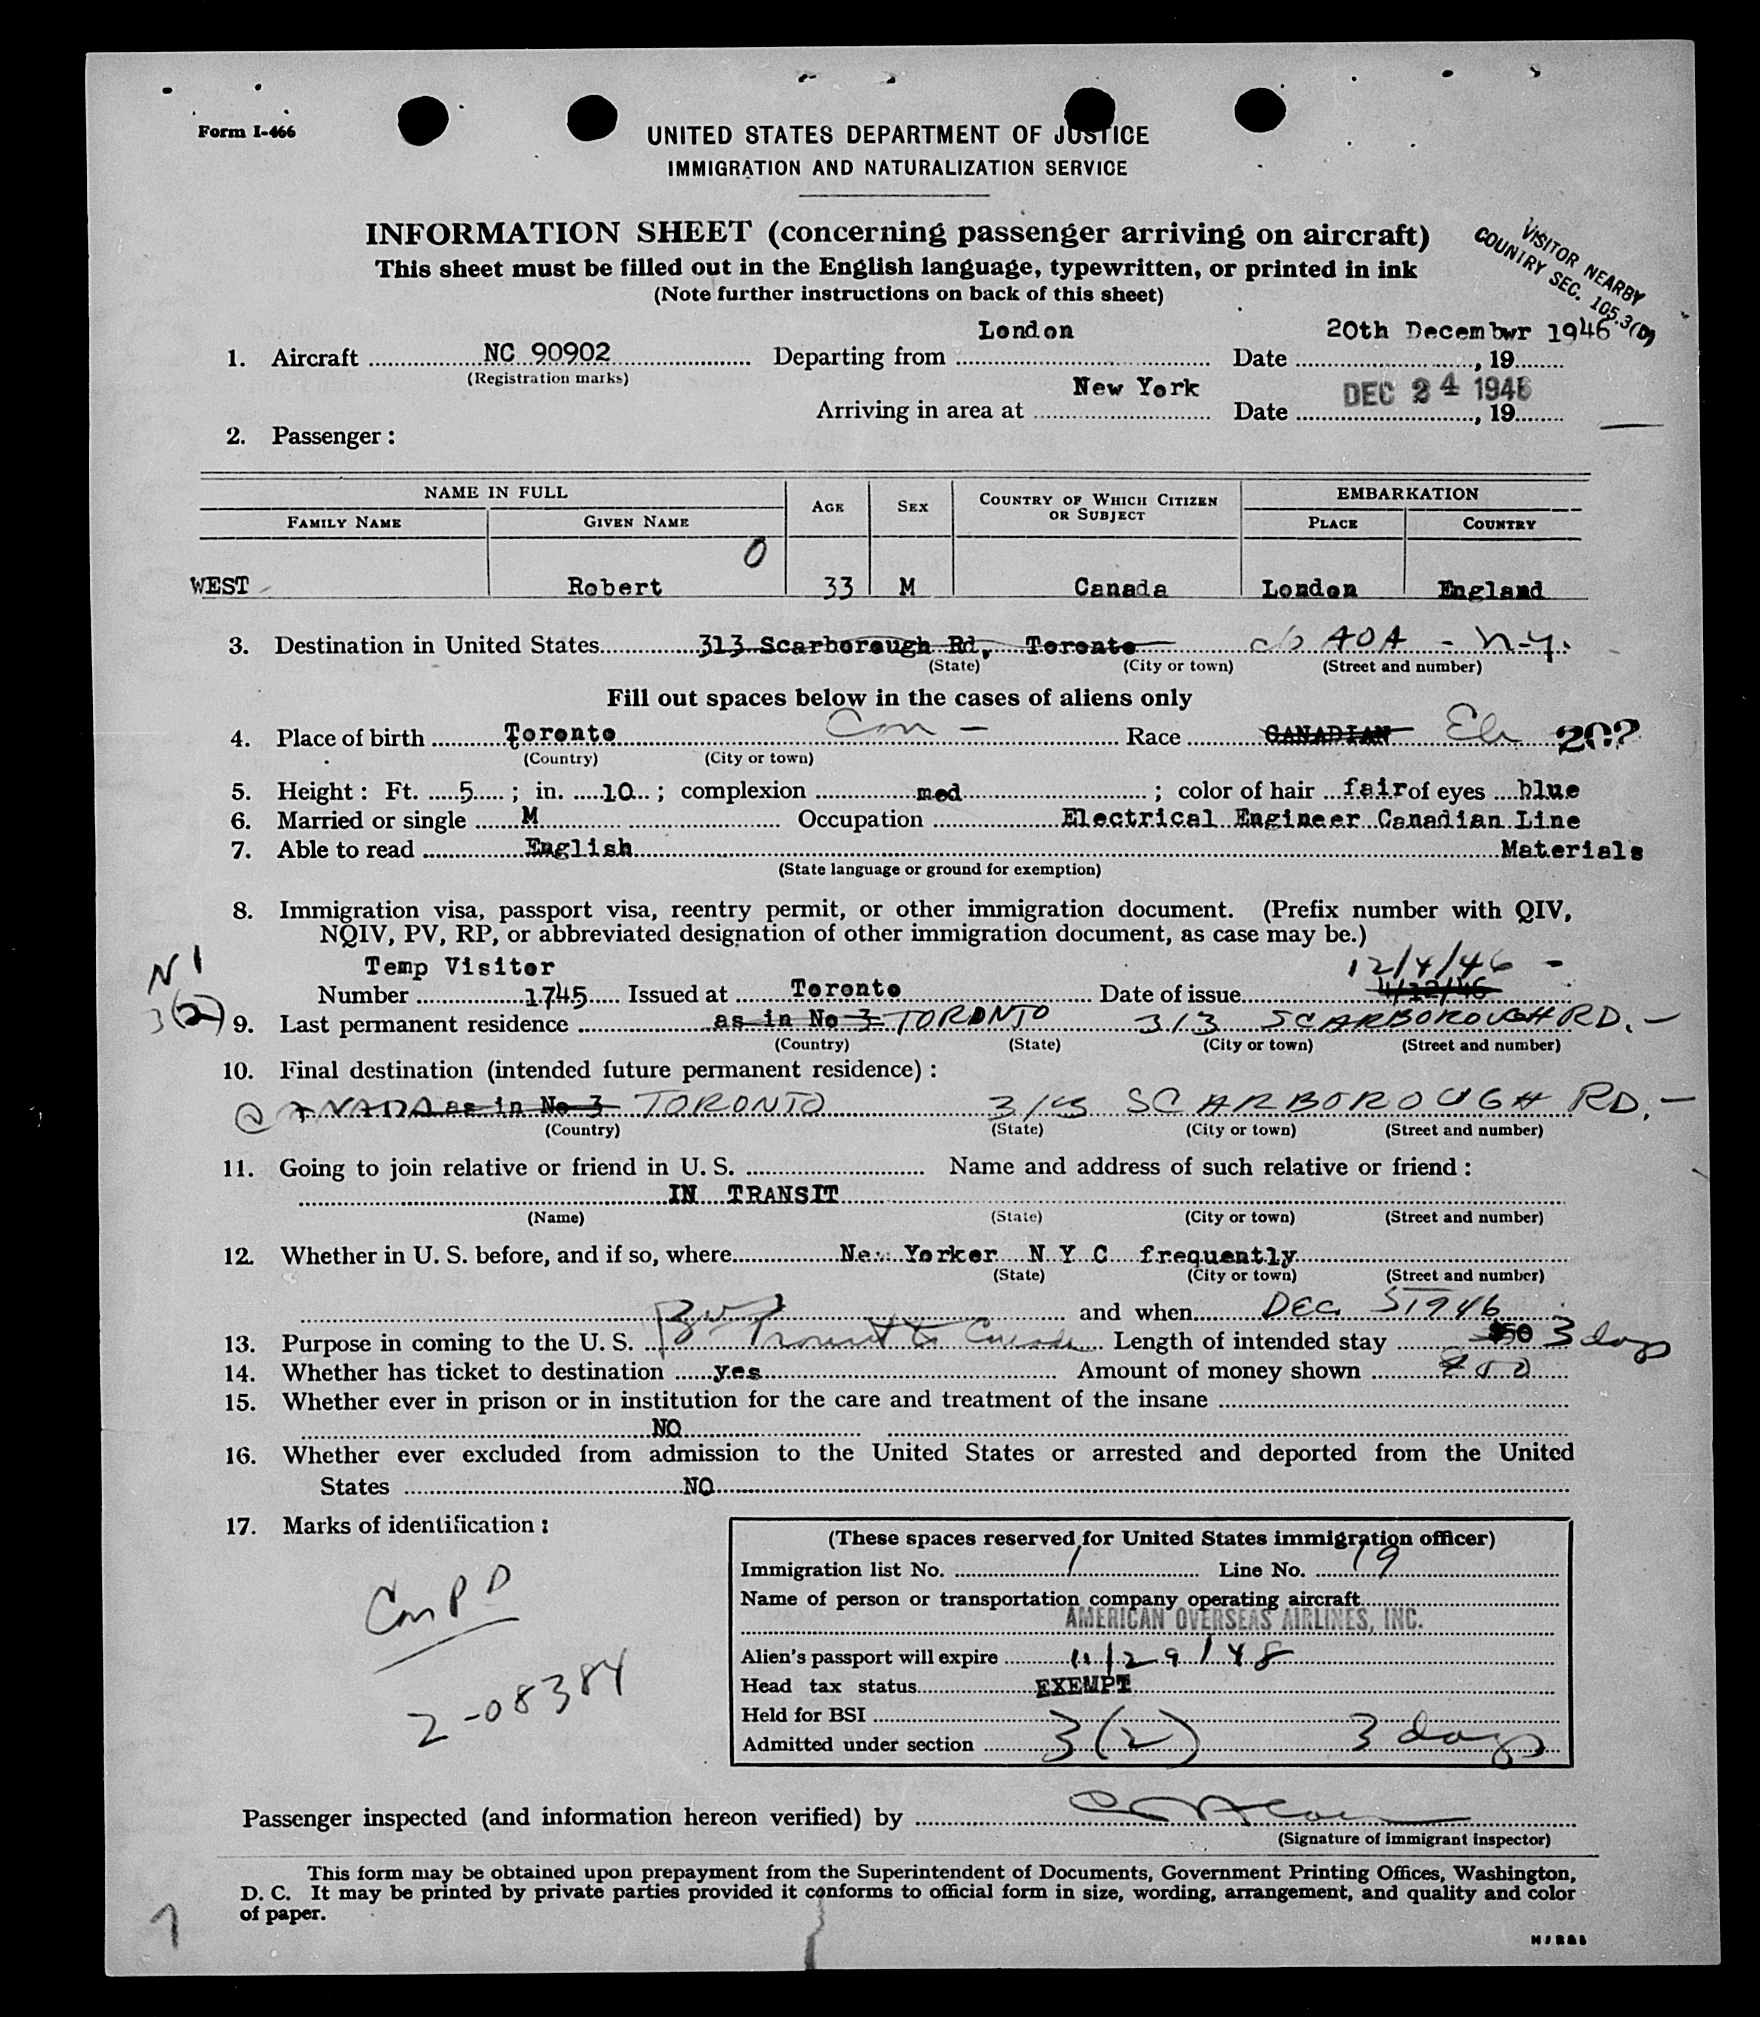 Form I-466
UNITED STATES DEPARTMENT OF JUSTICE
IMMIGRATION AND NATURALIZATION SERVICE
INFORMATION SHEET (concerning passenger arriving on aircraft)
This sheet must be filled out in the English language, typewritten, or printed in ink
(Note further instructions on back of this sheet)
VISITOR NEARBY
COUNTRY SEC. 105.3(D)
London 20th Decembwr 1946
1. Aircraft NC 90902 Departing from Date , 19
(Registration marks)
New York DEC 24 1946
Arriving in area at Date , 19
2. Passenger :
NAME IN FULL AGE SEX COUNTRY OF WHICH CITIZEN OR SUBJECT EMBARKATION
FAMILY NAME GIVEN NAME PLACE COUNTRY
0
WEST Robert 33 M Canada London England
3. Destination in United States 313 Scarborough Rd, Toronto c/o AOA - N-Y.
(State) (City or town) (Street and number)
Fill out spaces below in the cases of aliens only
4. Place of birth Toronto Can - Race CANADIAN 202
(Country) (City or town)
5. Height : Ft. 5 ; in. 10 ; complexion med ; color of hair fair of eyes blue
6. Married or single M Occupation Electrical Engineer Canadian Line
7. Able to read English Materials
(State language or ground for exemption)
8. Immigration visa, passport visa, reentry permit, or other immigration document. (Prefix number with QIV,
NQIV, PV, RP, or abbreviated designation of other immigration document, as case may be.)
N 1
Temp Visitor 12/4/46 -
Number 1745 Issued at Toronto Date of issue 4/12/46
3(2) 9. Last permanent residence as in No 3 TORONTO 313 SCARBOROUGH RD. -
(Country) (State) (City or town) (Street and number)
10. Final destination (intended future permanent residence) :
CANADA as in No 3 TORONTO 313 SCARBOROUGH RD. -
(Country) (State) (City or town) (Street and number)
11. Going to join relative or friend in U. S. Name and address of such relative or friend :
IN TRANSIT
(Name) (State) (City or town) (Street and number)
12. Whether in U. S. before, and if so, where New Yorker N Y C frequently
(State) (City or town) (Street and number)
and when DEC. 5 1946
13. Purpose in coming to the U. S. Transit to Canada Length of intended stay 3 days
14. Whether has ticket to destination yes Amount of money shown
15. Whether ever in prison or in institution for the care and treatment of the insane
NO
16. Whether ever excluded from admission to the United States or arrested and deported from the United
States NO
17. Marks of identification :
Can P D
2-08384
(These spaces reserved for United States immigration officer)
Immigration list No. 1 Line No. 19
Name of person or transportation company operating aircraft
AMERICAN OVERSEAS AIRLINES, INC.
Alien's passport will expire 11/29/48
Head tax status EXEMPT
Held for BSI
Admitted under section 3(2) 3 days
Passenger inspected (and information hereon verified) by
(Signature of immigrant inspector)
This form may be obtained upon prepayment from the Superintendent of Documents, Government Printing Offices, Washington,
D. C. It may be printed by private parties provided it conforms to official form in size, wording, arrangement, and quality and color
of paper.